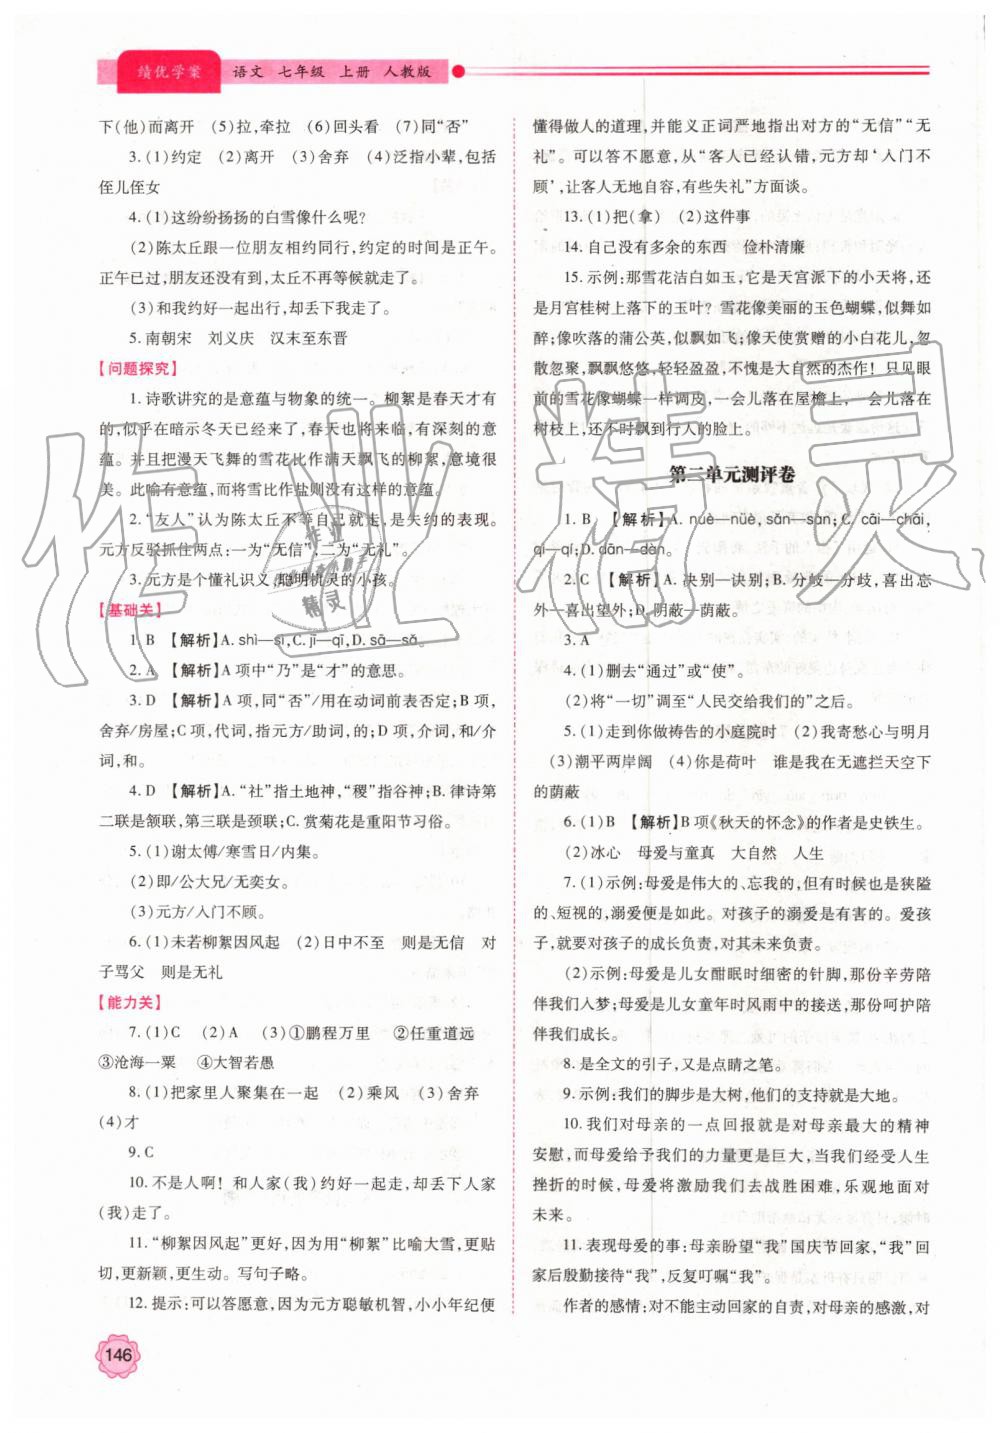 绩优学案 语文 七年级 上册 人教版
下(他)而离开 (5)拉,牵拉 (6)回头看 (7)同“否”
3. (1)约定 (2)离开 (3)舍弃 (4)泛指小辈,包括
侄儿侄女
4. (1)这纷纷扬扬的白雪像什么呢?
(2)陈太丘跟一位朋友相约同行,约定的时间是正午。
正午已过,朋友还没有到,太丘不再等候就走了。
(3)和我约好一起出行,却丢下我走了。
5. 南朝宋 刘义庆 汉末至东晋
【问题探究】
1. 诗歌讲究的是意蕴与物象的统一。柳絮是春天才有
的,似乎在暗示冬天已经来了,春天也将来临,有深刻的意
蕴。并且把漫天飞舞的雪花比作满天飘飞的柳絮,意境优
美。此喻有意蕴,而将雪比作盐则没有这样的意蕴。
2. “友人”认为陈太丘不等自己就走,是失约的表现。
元方反驳抓住两点:一为“无信”,二为“无礼”。
3. 元方是个懂礼识义,聪明机灵的小孩。
【基础关】
1. B 【解析】A. shì—sì,C. jī—qī,D. sā—sǎ。
2. A 【解析】A 项中“乃”是“才”的意思。
3. D 【解析】A 项,同“否”/用在动词前表否定;B 项,
舍弃/房屋;C 项,代词,指元方/助词,的;D 项,介词,和/介
词,和。
4. D 【解析】A. “社”指土地神,“稷”指谷神;B. 律诗第
二联是颔联,第三联是颈联;C. 赏菊花是重阳节习俗。
5. (1)谢太傅/寒雪日/内集。
(2)即/公大兄/无奕女。
(3)元方/入门不顾。
6. (1)未若柳絮因风起 (2)日中不至 则是无信 对
子骂父 则是无礼
【能力关】
7. (1)C (2)A (3)①鹏程万里 ②任重道远
③沧海一粟 ④大智若愚
8. (1)把家里人聚集在一起 (2)乘风 (3)舍弃
(4)才
9. C
10. 不是人啊! 和人家(我)约好一起走,却丢下人家
(我)走了。
11. “柳絮因风起”更好,因为用“柳絮”比喻大雪,更贴
切,更新颖,更生动。写句子略。
12. 提示:可以答愿意,因为元方聪敏机智,小小年纪便
146
懂得做人的道理,并能义正词严地指出对方的“无信”“无
礼”。可以答不愿意,从“客人已经认错,元方却‘入门不
顾’,让客人无地自容,有些失礼”方面谈。
13. (1)把(拿) (2)这件事
14. 自己没有多余的东西 俭朴清廉
15. 示例:那雪花洁白如玉,它是天宫派下的小天将,还
是月宫桂树上落下的玉叶? 雪花像美丽的玉色蝴蝶,似舞如
醉;像吹落的蒲公英,似飘如飞;像天使赏赠的小白花儿,忽
散忽聚,飘飘悠悠,轻轻盈盈,不愧是大自然的杰作! 只见眼
前的雪花像蝴蝶一样调皮,一会儿落在屋檐上,一会儿落在
树枝上,还不时飘到行人的脸上。
第二单元测评卷
1. B 【解析】A. nuè—nüè, sǎn—sàn; C. cāi—chāi,
qí—qí; D. dān—dàn。
2. C 【解析】A. 决别—诀别;B. 分歧—分歧,喜出忘
外—喜出望外;D. 阴蔽—荫蔽。
3. A
4. (1)删去“通过”或“使”。
(2)将“一切”调至“人民交给我们的”之后。
5. (1)走到你做祷告的小庭院时 (2)我寄愁心与明月
(3)潮平两岸阔 (4)你是荷叶 谁是我在无遮拦天空下
的荫蔽
6. (1)B 【解析】B 项《秋天的怀念》的作者是史铁生。
(2)冰心 母爱与童真 大自然 人生
7. (1)示例:母爱是伟大的、忘我的,但有时候也是狭隘
的、短视的,溺爱便是如此。对孩子的溺爱是有害的。爱孩
子,就要对孩子的成长负责,对其未来负责。
(2)示例:母爱是儿女酣眠时细密的针脚,那份辛劳陪
伴我们入梦;母爱是儿女童年时风雨中的接送,那份呵护陪
伴我们成长。
8. 是全文的引子,又是点睛之笔。
9. 示例:我们的脚步是大树,他们的支持就是大地。
10. 我们对母亲的一点回报就是对母亲最大的精神
安慰,而母爱给予我们的力量更是巨大,当我们经受人生
挫折的时候,母爱将激励我们去战胜困难,乐观地面对
未来。
11. 表现母爱的事:母亲盼望“我”国庆节回家,“我”回
家后殷勤接待“我”,反复叮嘱“我”。
作者的感情:对不能主动回家的自责,对母亲的感激,对